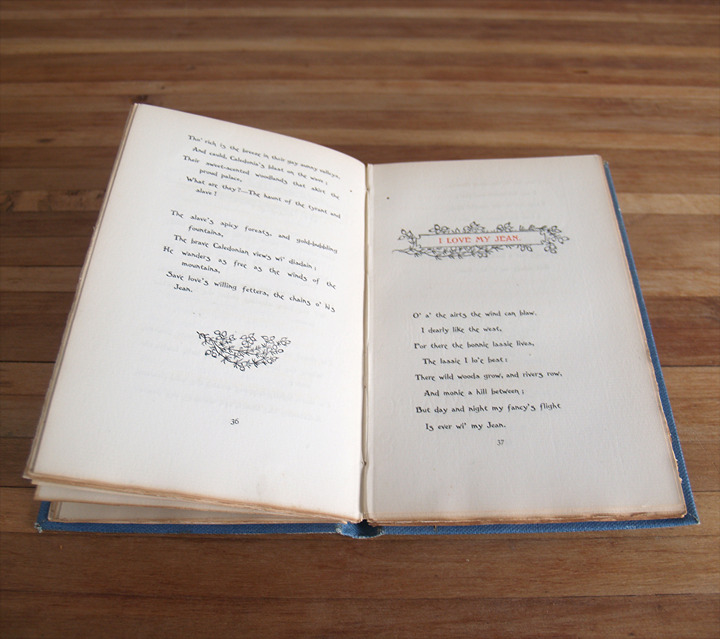 Tho' rich is the breeze in their gay sunny valleys,
And cauld, Caledonia's blast on the wave;
Their sweet-scented woodlands that skirt the
proud palace,
What are they?—The haunt of the tyrant and
slave!
The slave's spicy forests, and gold-bubbling
fountains,
The brave Caledonian views wi' disdain;
He wanders as free as the winds of the
mountains,
Save love's willing fetters, the chains o' his
Jean.
36
I LOVE MY JEAN.
O' a' the airts the wind can blaw,
I dearly like the west,
For there the bonnie lassie lives,
The lassie I lo'e best:
There wild woods grow, and rivers row,
And monie a hill between;
But day and night my fancy's flight
Is ever wi' my Jean.
37